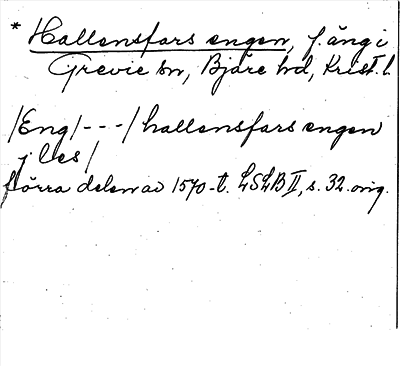 * Hallensfars engen, f. äng i
Grevie sn, Bjäre hd, Krist. l.
/Eng/---/hallensfars engen
j Les/
Förra delen av 1570-t. LSLB II, s. 32. orig.